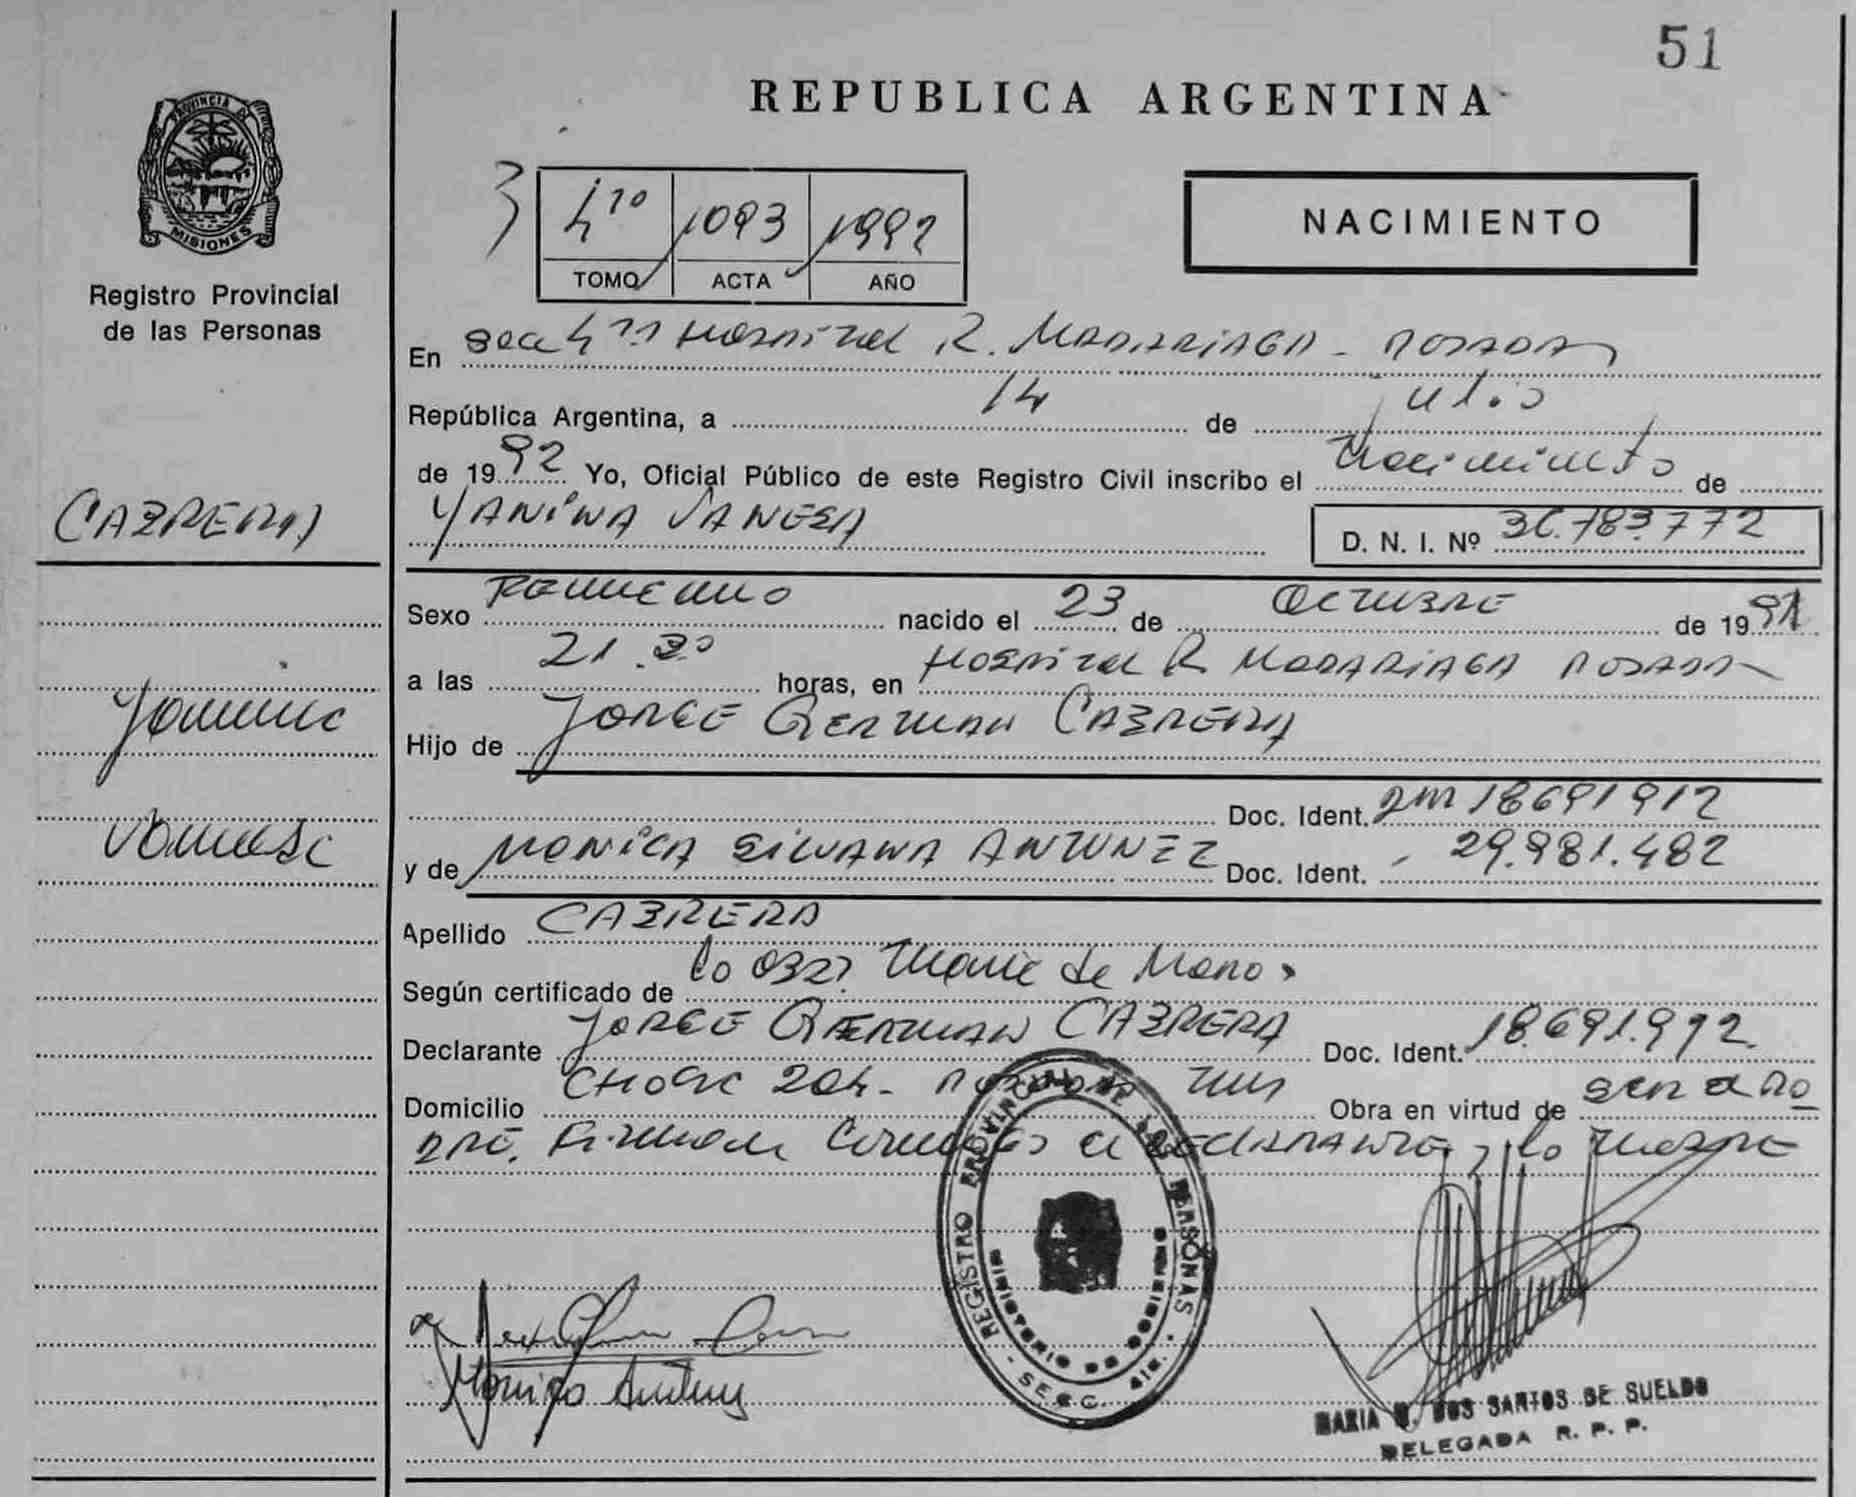 51
REPUBLICA ARGENTINA
PROVINCIA DE
MISIONES
Registro Provincial
de las Personas
4to 1093 1992
TOMO ACTA AÑO
NACIMIENTO
En Sec 4ta Hospital R. MADARIAGA - POSADAS
República Argentina, a 14 de julio
de 1992 Yo, Oficial Público de este Registro Civil inscribo el Nacimiento de
CABRERA
YANINA VANESA D. N. I. Nº 36.783.772
Sexo Femenino nacido el 23 de OCTUBRE de 1991
a las 21.30 horas, en Hospital R MADARIAGA POSADAS
Yanina
Hijo de JORGE GERMAN CABRERA
Doc. Ident. DNI 18691912
Vanesa
y de MONICA SILVANA ANTUNEZ Doc. Ident. 29.981.482
Apellido CABRERA
Según certificado de la Obst.
Declarante JORGE GERMAN CABRERA Doc. Ident. 18.691.912.
Domicilio 204 - Obra en virtud de ser el pa
dre. Firman el DECLARANTE y la madre
REGISTRO PROVINCIAL DE LAS PERSONAS
MINISTERIO DE GOBIERNO
Monica
MARIA DOS SANTOS DE SUELDO
DELEGADA R. P. P.